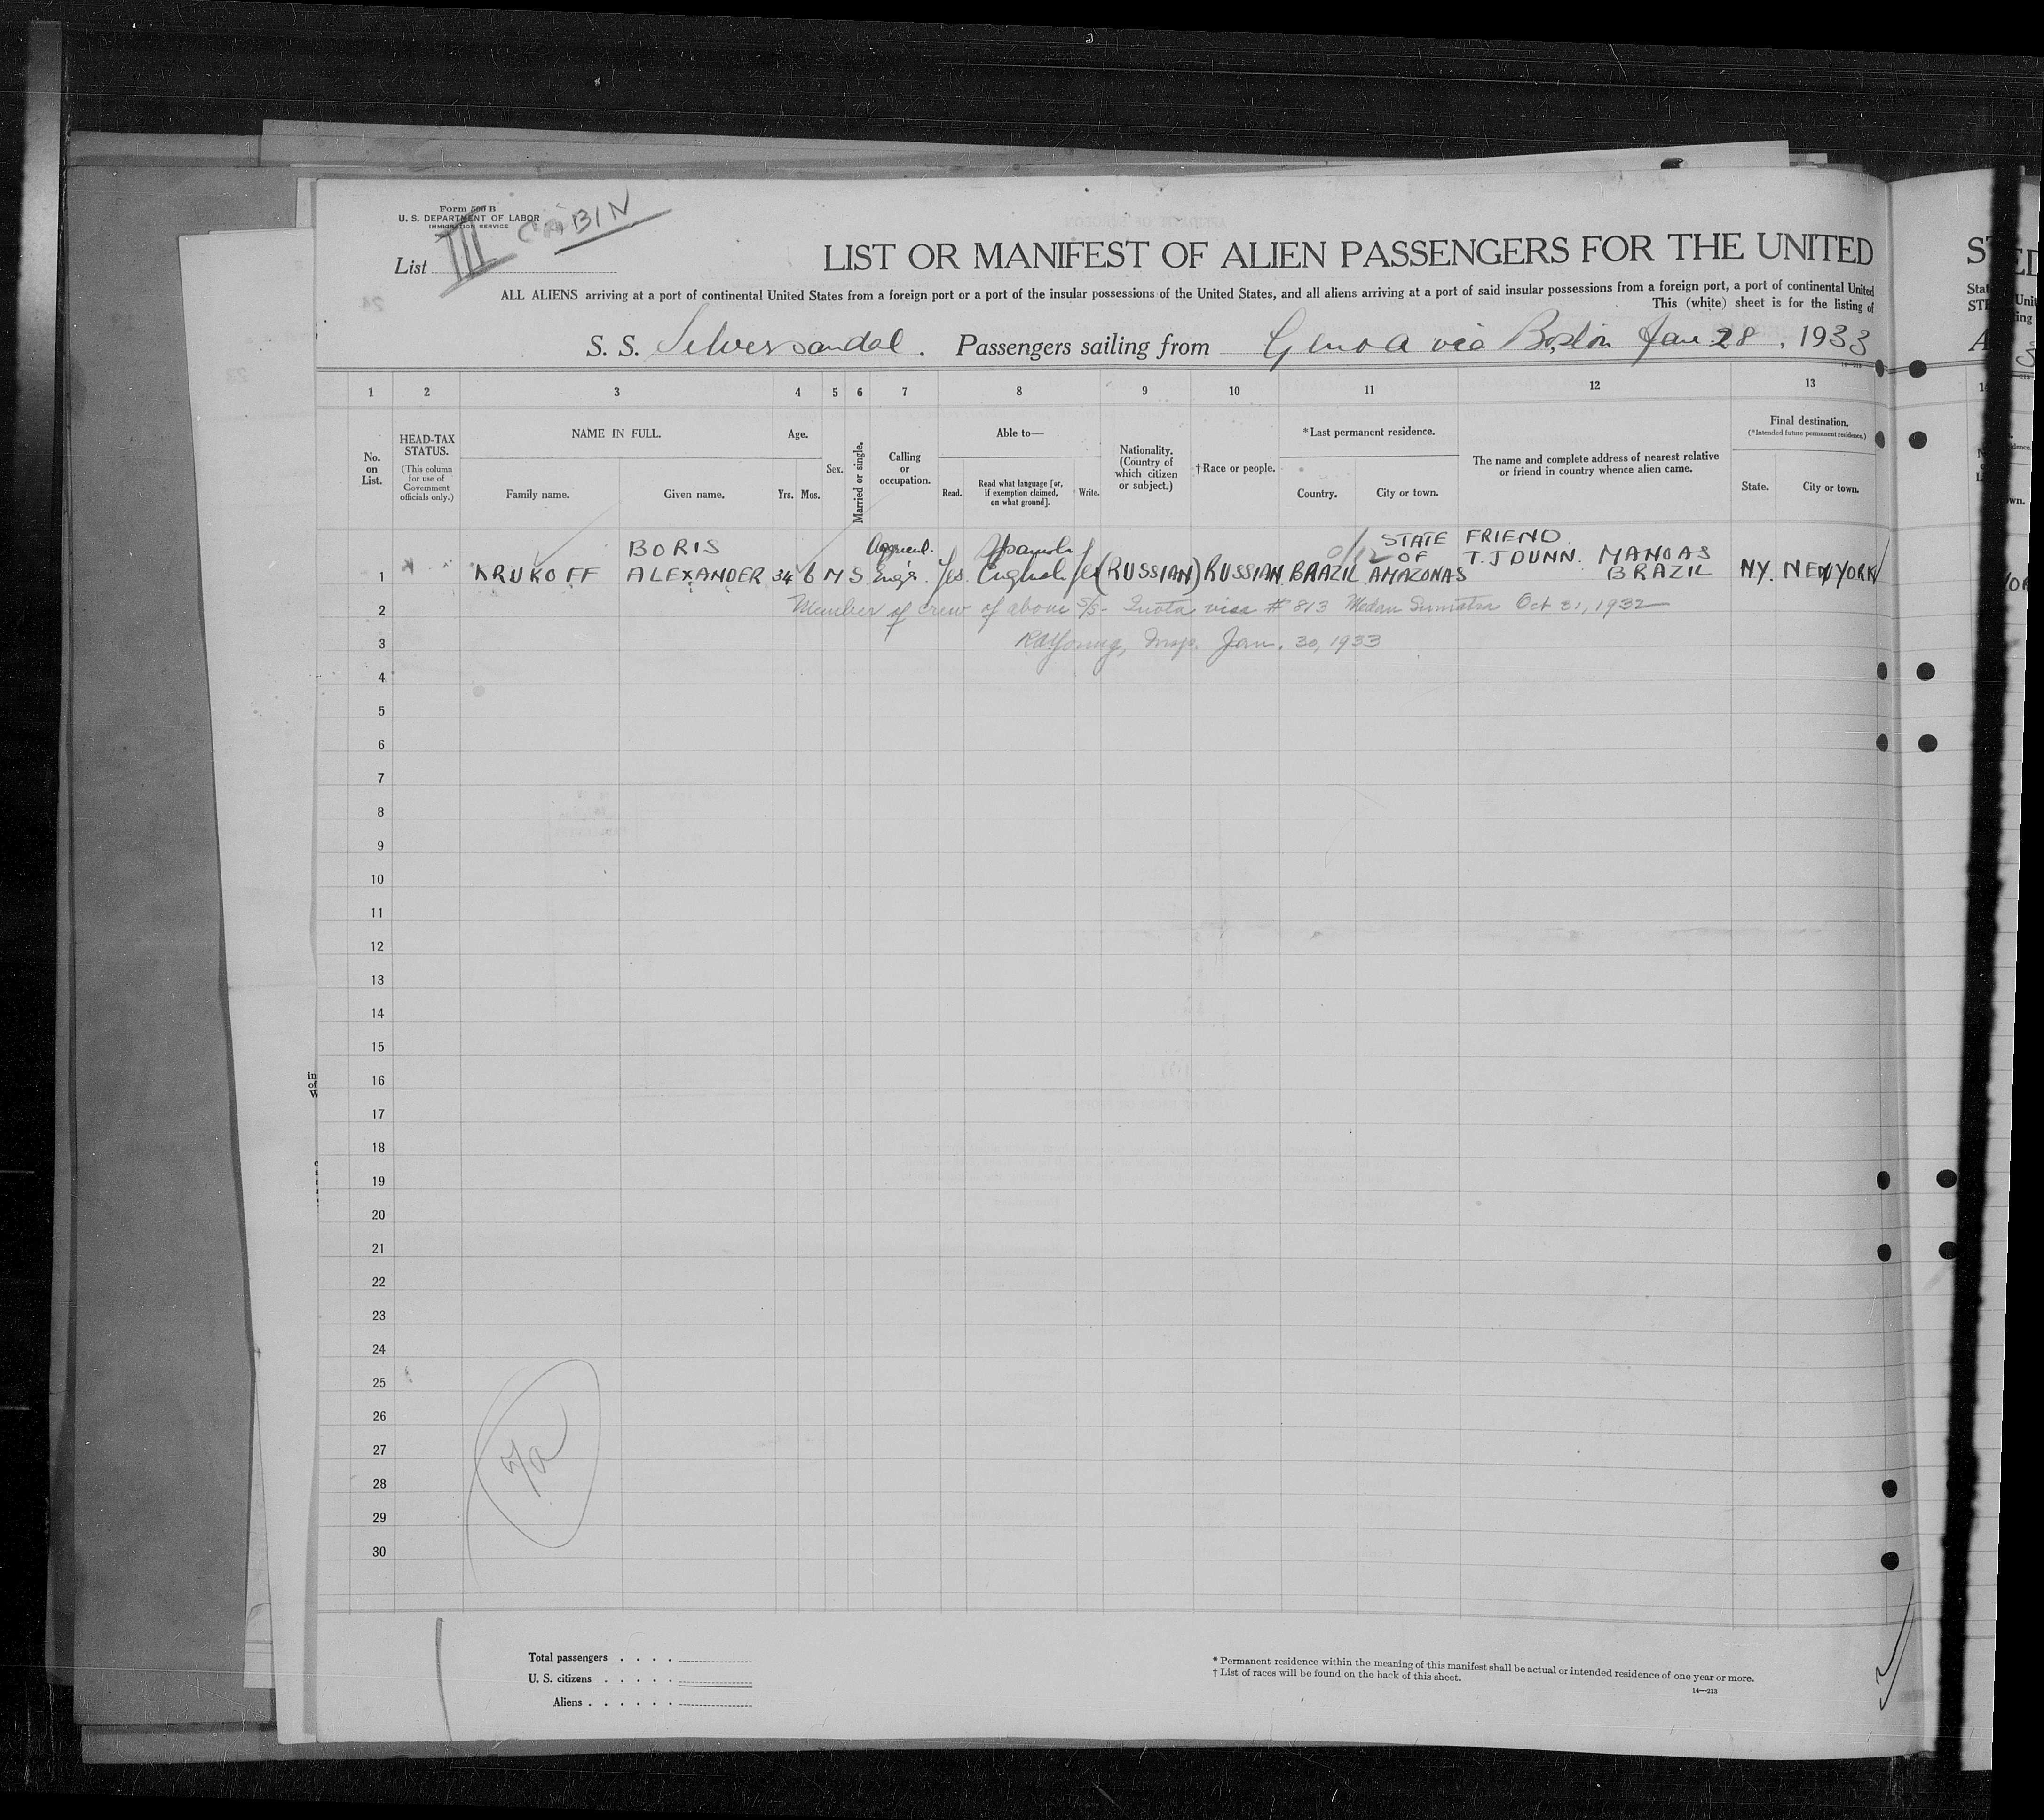 Form 500 B
U. S. DEPARTMENT OF LABOR
IMMIGRATION SERVICE
III CABIN
List
LIST OR MANIFEST OF ALIEN PASSENGERS FOR THE UNITED
ALL ALIENS arriving at a port of continental United States from a foreign port or a port of the insular possessions of the United States, and all aliens arriving at a port of said insular possessions from a foreign port, a port of continental United
This (white) sheet is for the listing of
S. S. Silversandal. Passengers sailing from Genoa via Boston Jan 28, 1933
1 2 3 4 5 6 7 8 9 10 11 12 13
No. on List.
HEAD-TAX STATUS.
(This column for use of Government officials only.)
NAME IN FULL.
Family name. Given name.
Age.
Yrs. Mos.
Sex.
Married or single.
Calling or occupation.
Able to—
Read. Read what language [or, if exemption claimed, on what ground]. Write.
Nationality. (Country of which citizen or subject.)
†Race or people.
*Last permanent residence.
Country. City or town.
The name and complete address of nearest relative or friend in country whence alien came.
Final destination.
(*Intended future permanent residence.)
State. City or town.
BORIS Spanish STATE FRIEND
OF T. J DUNN. MANOAS
1 KRUKOFF ALEXANDER 34 6 M S Engr. Yes English Yes (RUSSIAN) RUSSIAN BRAZIL AMAZONAS BRAZIL N.Y. NEW YORK
2 Member of crew of above S/S- Quota visa # 813 Medan Sumatra Oct 31, 1932
3 Young, Insp. Jan. 30, 1933
4
5
6
7
8
9
10
11
12
13
14
15
16
17
18
19
20
21
22
23
24
25
26
27
28
29
30
Total passengers
U. S. citizens
Aliens
* Permanent residence within the meaning of this manifest shall be actual or intended residence of one year or more.
† List of races will be found on the back of this sheet.
14—213